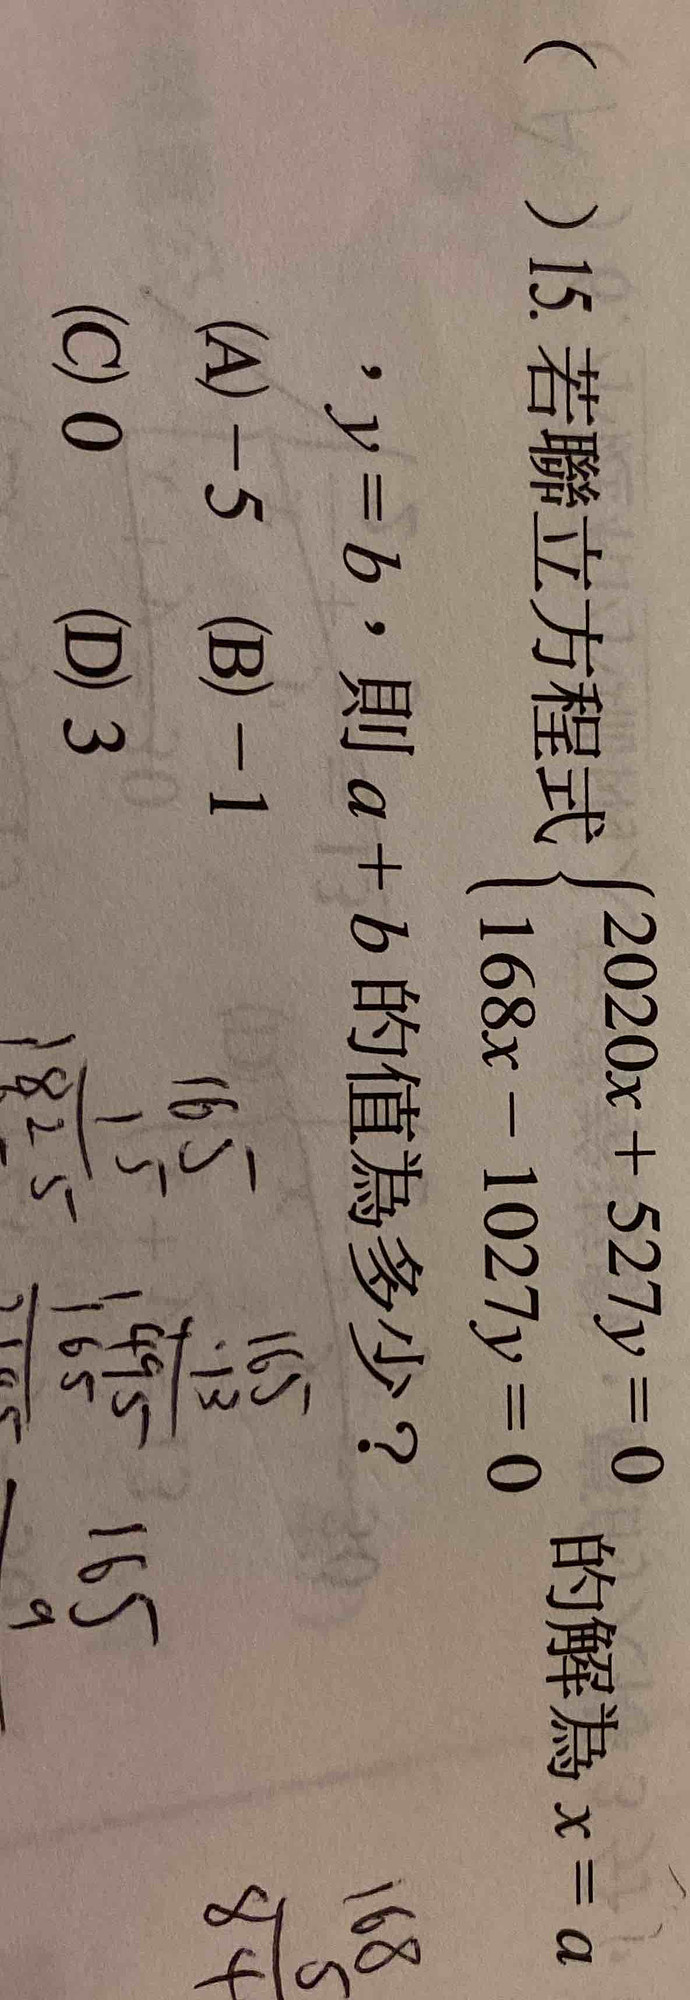 ( )15. 若聯立方程式{2020x+527y=0
168x-1027y=0 的解為 x=a
,y=b,則 a+b 的值為多少?
(A)-5 (B)-1
(C) 0 (D) 3
165
15
825
1
165
13
495
165
165
9
168
5
84